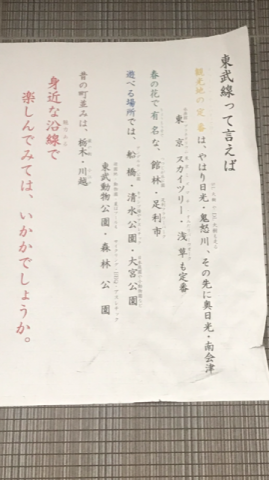 東武線って言えば
観光地の定番は、やはり日光・鬼怒川、その先に奥日光・南会津
東京スカイツリー・浅草も定番
春の花で有名な、館林・足利市
遊べる場所では、船橋・清水公園・大宮公園
東武動物公園・森林公園
昔の町並みは、栃木・川越
身近な沿線で
楽しんでみては、いかかでしょうか。